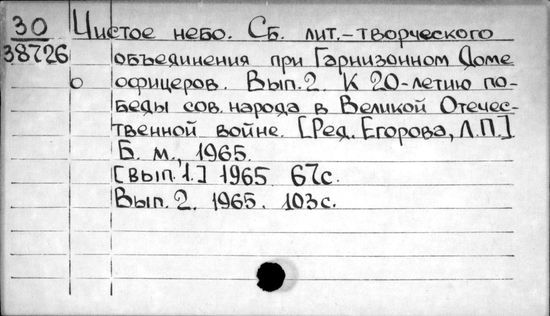 30 Чистое небо. Сб. лит.-творческого
38726 объединения при Гарнизонном Доме
офицеров. Вып. 2. К 20-летию по-
беды сов. народа в Великой Отечес-
твенной войне. [Ред. Егорова, Л.П.]
Б. м., 1965.
[Вып. 1.] 1965 67с.
Вып. 2. 1965. 103с.